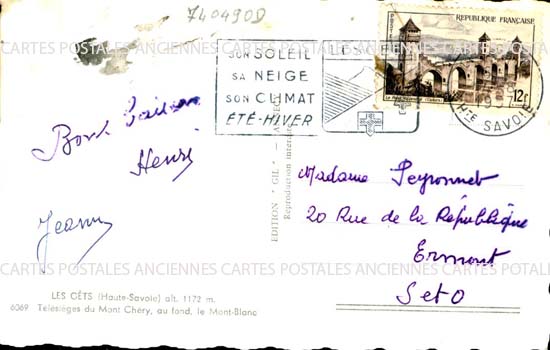 740490D
SON SOLEIL
SA NEIGE
SON CLIMAT
ÉTÉ-HIVER
LES
REPUBLIQUE FRANÇAISE
12F
HTE SAVOIE
CARTES POSTALES ANCIENNES CARTES POSTALES ANCIENNES CARTES POSTALES ANCIENNES
Bons Baisers
Henri
Jeanne
EDITION "GIL"
Reproduction interdite
Madame Peyronnet
20 Rue de la République
Ermont
Set O
CARTES POSTALES ANCIENNES CARTES POSTALES ANCIENNES CARTES POSTALES ANCIENNES
LES GÊTS (Haute-Savoie) alt. 1172 m.
6069 Télésièges du Mont Chéry, au fond, le Mont-Blanc